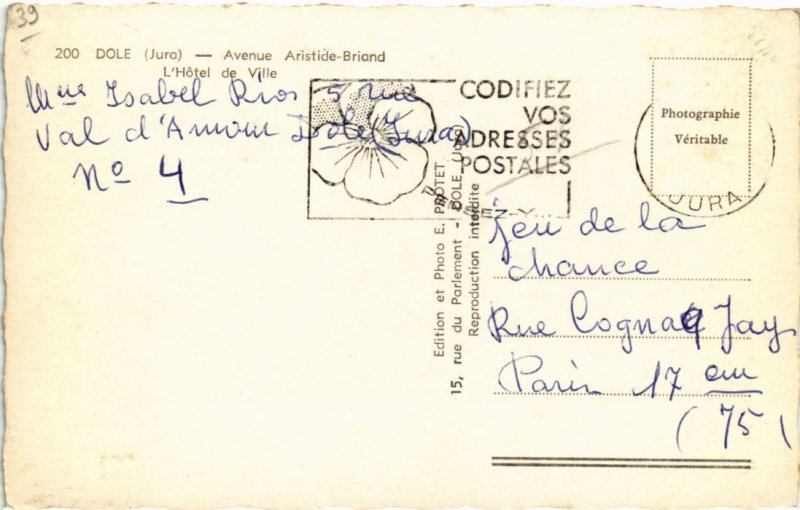 39
200 DOLE (Jura) — Avenue Aristide-Briand
L'Hôtel de Ville
Mme Isabel Rios 5 rue
Val d'Amour Dole (Jura)
No 4
CODIFIEZ
VOS
ADRESSES
POSTALES
EZ-Y...
Photographie
Véritable
JURA
Edition et Photo E. PROTET
15, rue du Parlement - DOLE (Jura)
Reproduction interdite
Jeu de la
chance
Rue Cognacq Jay
Paris 17 em
(75)